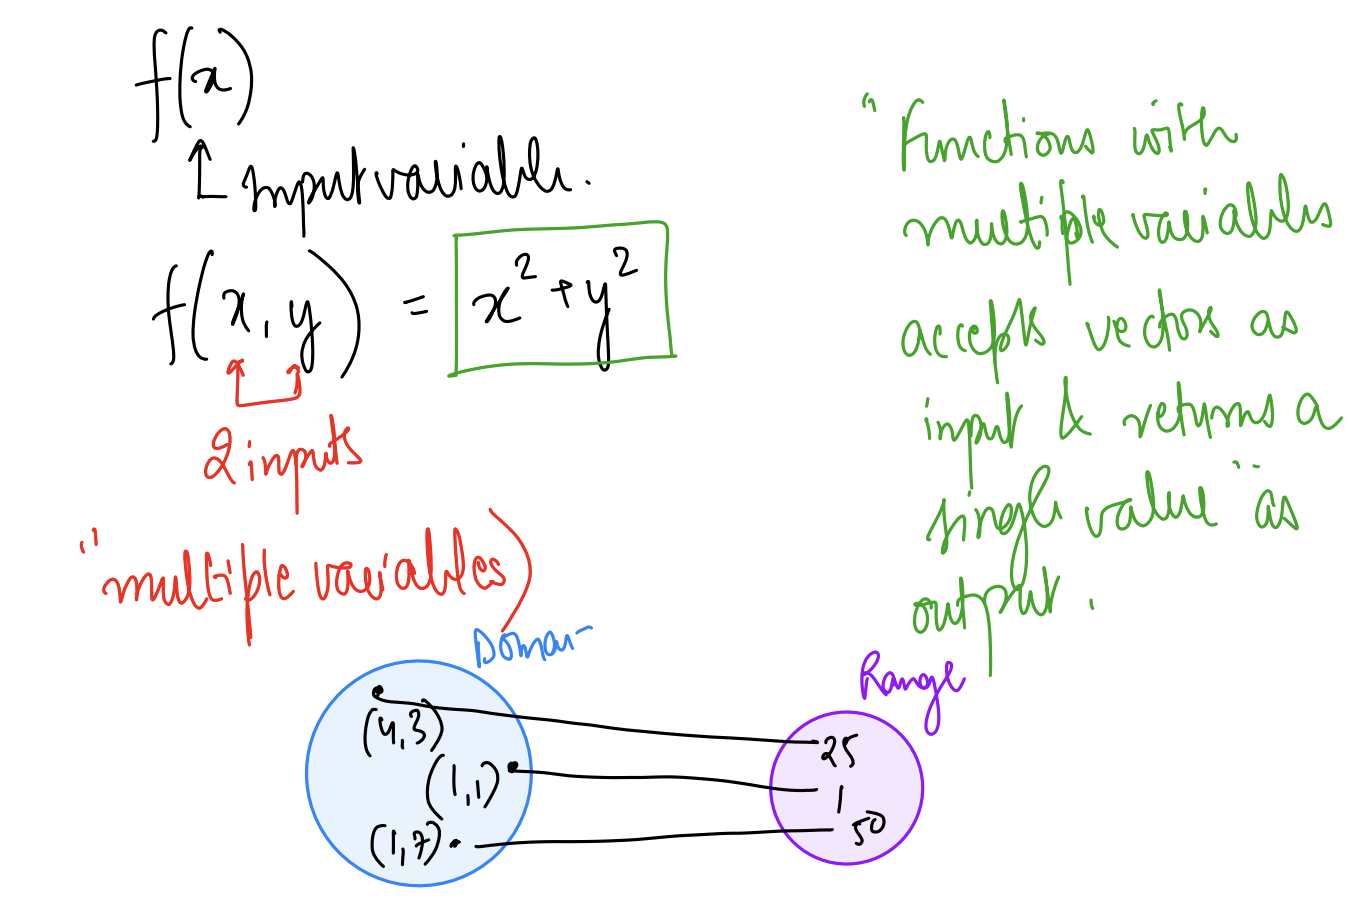 f(x)
input variable.
f(x, y) = x² + y²
2 inputs
"multiple variables)
"Functions with
multiple variables
accepts vectors as
input & returns a
single value" as
output.
Domain
Range
(4,3)
(1,1)
(1,7)
25
1
50